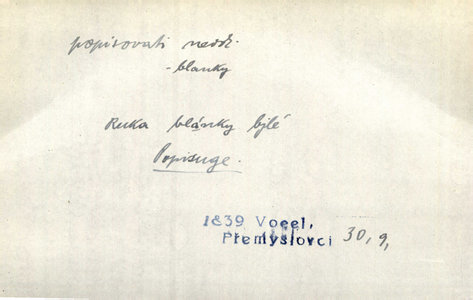 popisovati nedok.
-blanky
Ruka blánky bjlé
Popisuge.
1839 Vocel,
Přemyslovci 30, 9,